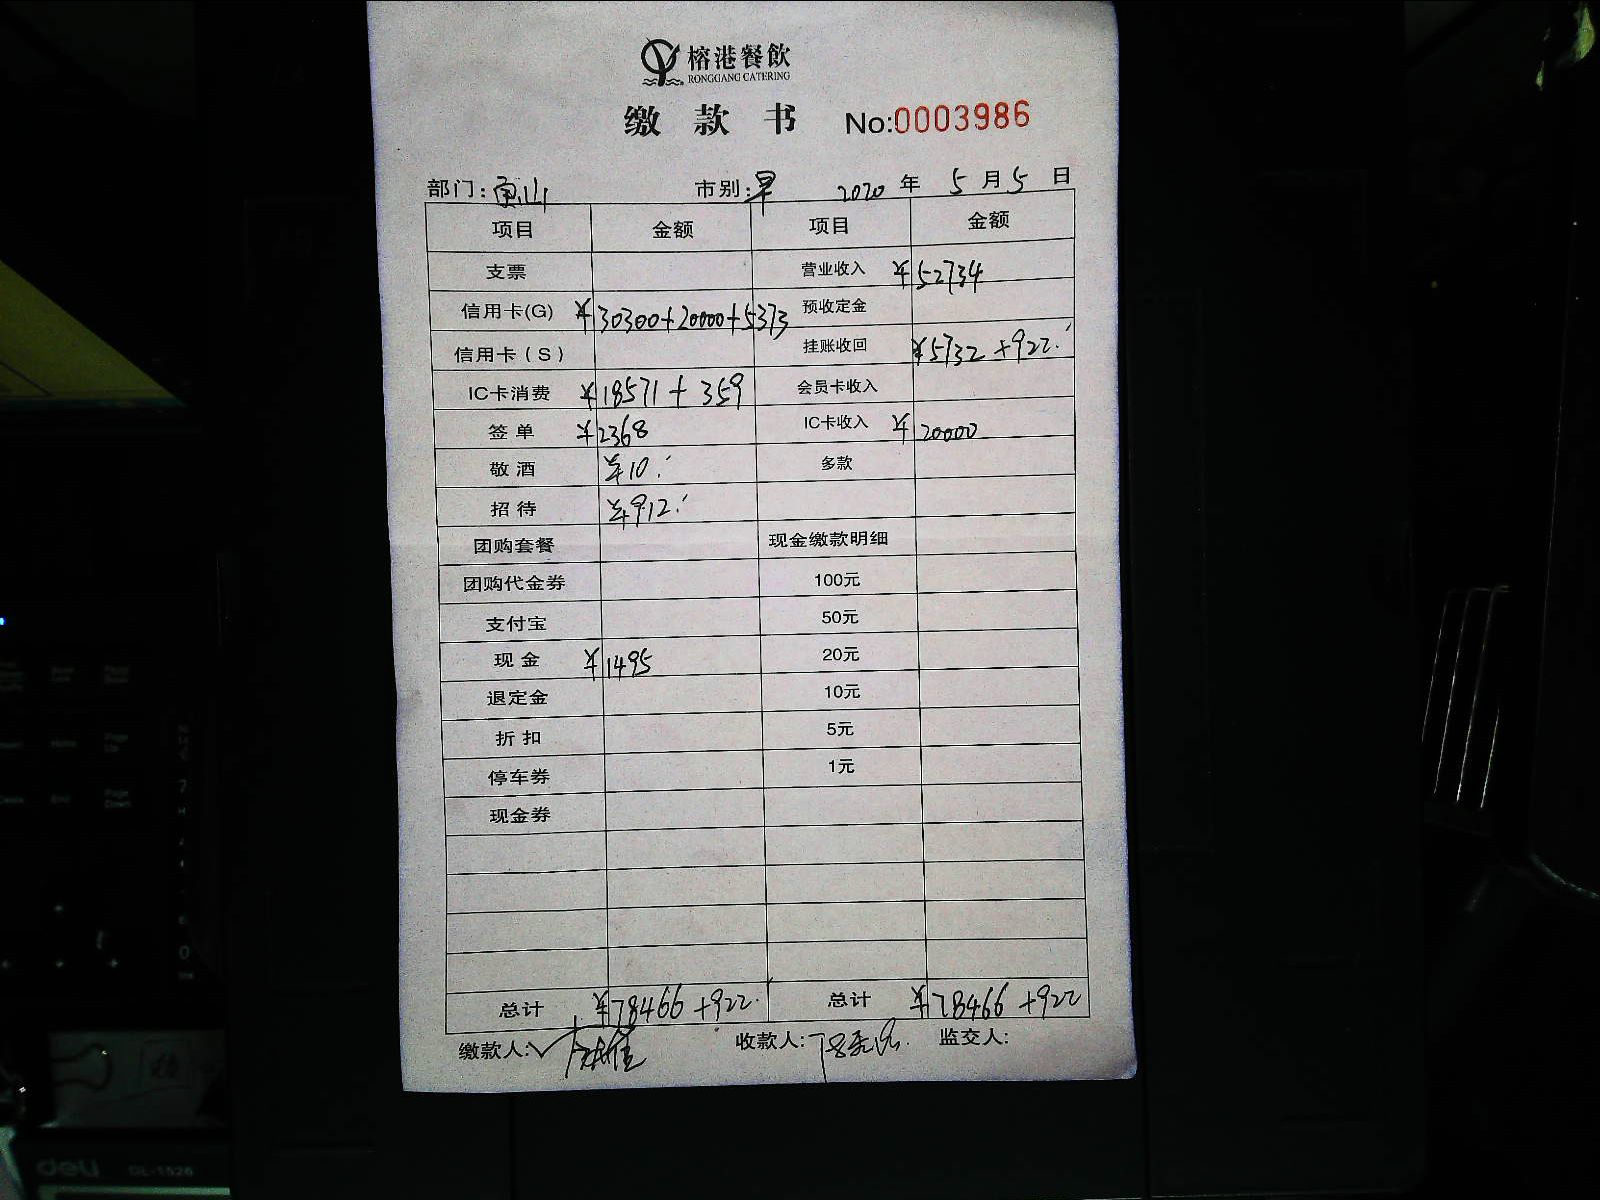 榕港餐飲
RONGGANG CATERING
缴款书 No:0003986
部门: 市别:早 2020年5月5日
项目 金额 项目 金额
支票 营业收入 ¥52734
信用卡(G) ¥30300+20000+5373 预收定金
信用卡(S) 挂账收回 ¥5732+922.
IC卡消费 ¥18571+359 会员卡收入
签单 ¥2368 IC卡收入 ¥20000
敬酒 ¥10. 多款
招待 ¥912.
团购套餐 现金缴款明细
团购代金券 100元
支付宝 50元
现金 ¥1495 20元
退定金 10元
折扣 5元
停车券 1元
现金券
总计 ¥78466+922. 总计 ¥78466+922
缴款人: 收款人: 监交人:
deli